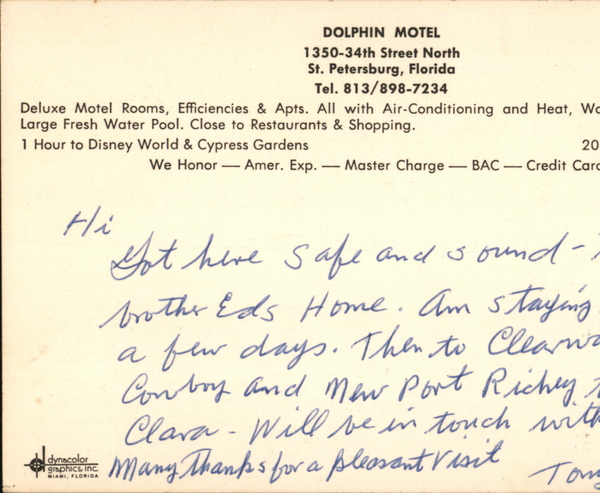 DOLPHIN MOTEL
1350-34th Street North
St. Petersburg, Florida
Tel. 813/898-7234
Deluxe Motel Rooms, Efficiencies & Apts. All with Air-Conditioning and Heat, Wa
Large Fresh Water Pool. Close to Restaurants & Shopping.
1 Hour to Disney World & Cypress Gardens 20
We Honor — Amer. Exp. — Master Charge — BAC — Credit Card
Hi
Got here safe and sound -
brother Eds Home. Am staying
a few days. Then to Clearwa
Cowboy and New Port Richey
Clara - Will be in touch with
Many Thanks for a pleasant visit
Tony
dynacolor
graphics, inc.
MIAMI, FLORIDA